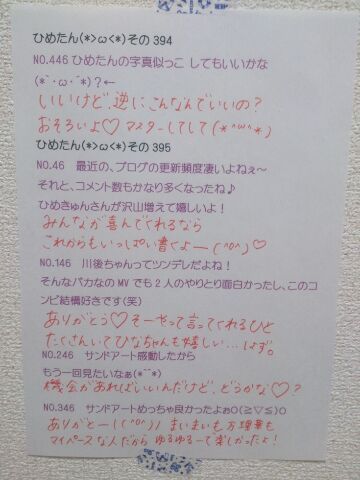 ひめたん(*>ω<*)その394
NO.446 ひめたんの字真似っこ してもいいかな
(*´･ω･`*)?←
いいけど、逆にこんなんでいいの?
おそろいよ♡マスターしてして(*^ω^*)
ひめたん(*>ω<*)その395
NO.46 最近の、ブログの更新頻度凄いよねぇ～
それと、コメント数もかなり多くなったね♪
ひめきゅんさんが沢山増えて嬉しいよ!
みんなが喜んでくれるなら
これからもいっぱい書くよー(^o^)♡
NO.146 川後ちゃんってツンデレだよね!
そんなバカなの MV でも 2 人のやりとり面白かったし、このコ
ンビ結構好きです(笑)
ありがとう♡そーやって言ってくれるひと
たくさんいてひなちゃんも嬉しい…はず。
NO.246 サンドアート感動したから
もう一回見たいなぁ(*´`*)
機会があればいいんだけど、どうかな♡?
NO.346 サンドアートめっちゃ良かったよぉO(≧▽≦)O
ありがとー!(^o^)ノ まいまいも万理華も
マイペースな人だからゆるゆるーで楽しかったよ!